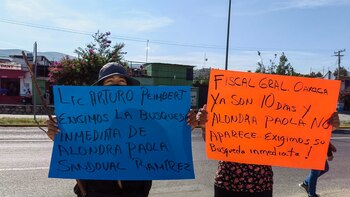 LIC ARTURO PEIMBERT
EXIGIMOS LA BUSQUEDA
INMEDIATA DE
ALONDRA PAOLA
SANDOVAL RAMÍREZ
FISCAL GRAL. OAXACA
YA SON 10 DÍAS Y
ALONDRA PAOLA NO
APARECE. EXIGIMOS SU
BUSQUEDA INMEDIATA!